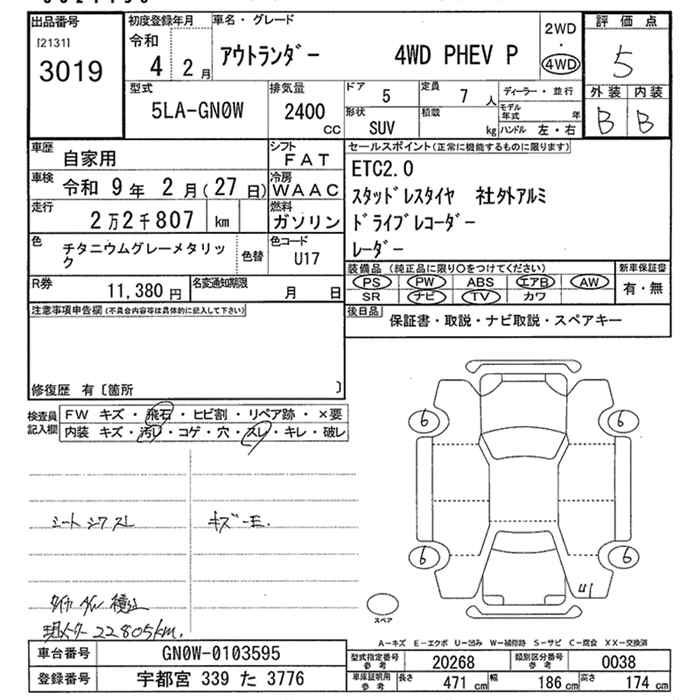 出品番号
[2131]
3019
初度登録年月
令和
4 2月
車名・グレード
アウトランダー 4WD PHEV P
2WD
・
4WD
評価点
5
型式
5LA-GN0W
排気量
2400
CC
ドア
5
定員
7人
ディーラー・並行
モデル年式 年
形状
SUV
積載
kg
ハンドル 左・右
外装 内装
B B
車歴
自家用
シフト
FAT
車検
令和 9年 2月(27日)
冷房
WAAC
走行
2万2千807 km
燃料
ガソリン
色
チタニウムグレーメタリック
色替
色コード
U17
R券
11,380円
名変通知期限
月 日
セールスポイント(正常に機能するものに限ります)
ETC2.0
スタッドレスタイヤ 社外アルミ
ドライブレコーダー
レーダー
装備品 (純正品に限り○をつけてください)
PS PW ABS エアB AW
SR ナビ TV カワ
新車保証書
有・無
後日品
保証書・取説・ナビ取説・スペアキー
注意事項申告欄(不具合内容等は具体的に記入して下さい)
修復歴 有〔箇所 〕
検査員記入欄
FW キズ・飛石・ヒビ割・リペア跡・×要
内装 キズ・汚レ・コゲ・穴・スレ・キレ・破レ
シートシワスレ
キズ-E.
22805km.
6 6
6 6
U1
スペア
A-キズ E-エクボ U-凹み W-補修跡 S-サビ C-腐食 XX-交換済
車台番号
GN0W-0103595
登録番号
宇都宮 339 た 3776
型式指定番号参考
20268
類別区分番号参考
0038
車庫証明用参考
長さ 471cm
幅 186cm
高さ 174cm